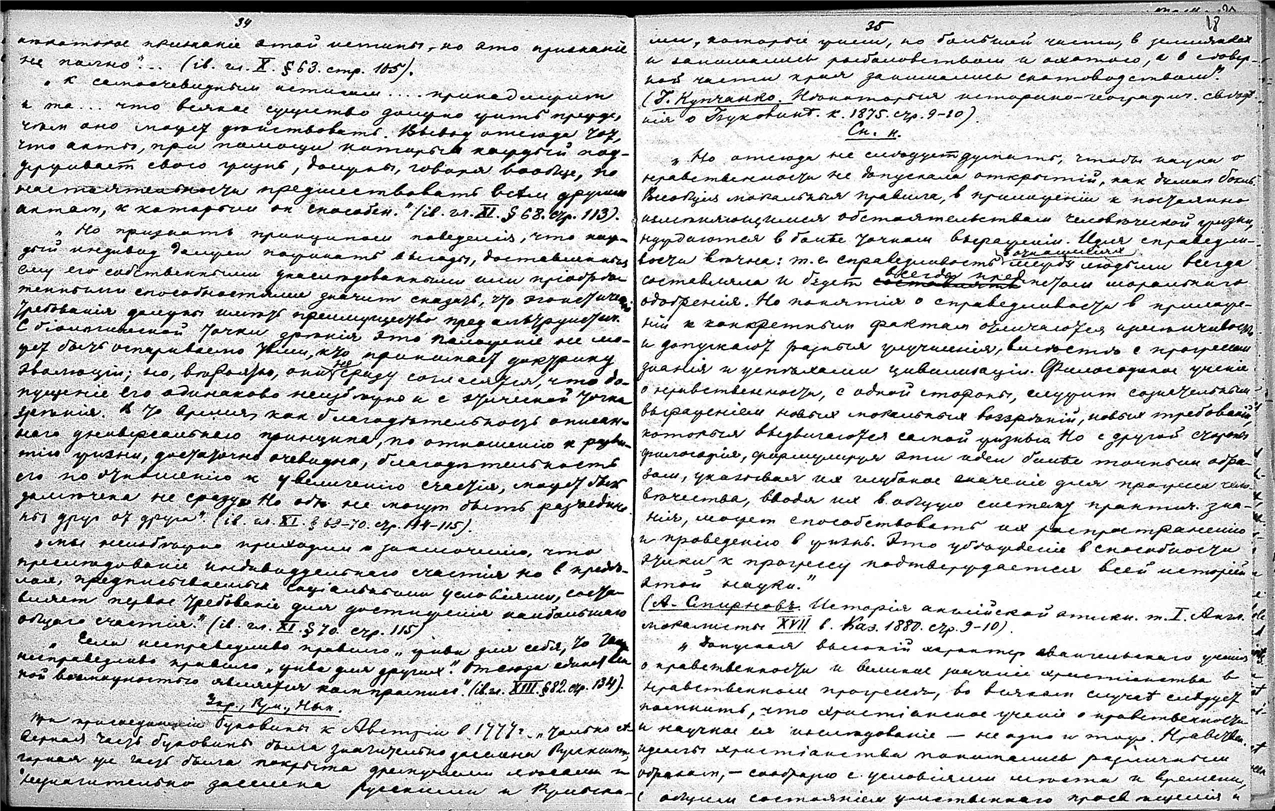 34
некоторое признание этой истины, но это признание
не полно"... (ib. гл. X. § 63. стр. 105).
"К самоочевидным истинам .... принадлежит
и та ... что всякое существо должно жить прежде,
чем оно может действовать. Вывод отсюда тот,
что акты, при помощи которых каждый под-
держивает свою жизнь, должны, говоря вообще, по
настоятельности предшествовать всем другим
актам, к которым он способен." (ib. гл. XI. § 68. стр. 113).
"Но признать принципом поведения, что каж-
дый индивид должен получать выгоды, доставляемые
ему его собственными унаследованными или приобре-
тенными способностями значит сказать, что эгоистическ.
требования должны иметь преимущество пред альтруистич.
С биологической точки зрения это положение не мо-
жет быть оспариваемо теми, кто принимает доктрину
эволюции; но, вероятно, они не сразу согласятся, что до-
пущение его одинаково неизбежно и с этической точки
зрения. В то время, как благодетельность описан-
ного универсального принципа, по отношению к разви-
тию жизни, достаточно очевидна, благодетельность
его по отношению к увеличению счастия, может быть
замечена не сразу. Но обе не могут быть разъедине-
ны друг от друга". (ib. гл. XI. § 69-70. стр. 114-115).
"Мы неизбежно приходим к заключению, что
преследование индивидуального счастия но в преде-
лах, предписываемых социальными условиями, соста-
вляет первое требование для достижения наибольшего
общего счастия." (ib. гл. XI § 70. стр. 115)
"Если несправедливо правило "живи для себя", то также
несправедливо правило "живи для других". Отсюда единствен-
ной возможностью является компромисс." (ib. гл. XIII. § 82. стр. 134).
При присоединении Буковины к Австрии в 1777 г. "только
верная часть Буковины была значительно заселена Русскими,
горная же часть была покрыта дремучими лесами и
незначительно заселена Русскими и
35
18
ми, которые жили, по большей части, в землянках
и занимались рыболовством и охотою, а в север-
ной части края занимались скотоводством".
(Г. Купчанко. Некоторыя историко-географич. сведе-
ния о Буковине. К. 1875. стр. 9-10).
См. н.
"Но отсюда не следует думать, чтобы наука о
нравственности не допускала открытий, как думал Бокль.
Всеобщия моральныя правила, в применении к постоянно
изменяющимся обстоятельствам человеческой жизни,
нуждаются в более точном выражении. Идея справедли-
вости вечна: т.е. справедливость в отношениях между людьми всегда
составляла и будет всегда пред метом моральнаго
одобрения. Но понятия о справедливости в примене-
нии к конкретным фактам отличаются изменчивостью
и допускают разныя улучшения, вместе с прогрессом
знания и успехами цивилизации. Философское учение
о нравственности, с одной стороны, служит сознательным
выражением новых моральных воззрений, новых требований,
которыя выдвигаются самой жизнью. Но с другой стороны
философия, формулируя эти идеи более точным обра-
зом, указывая их глубокое значение для прогресса чело-
вечества, вводя их в общую систему практич. зна-
ния, может способствовать их распространению
и проведению в жизнь. Это убеждение в способности
этики к прогрессу подтверждается всей историей
этой науки."
(А. Смирновъ. История английской этики. т. I. Англ.
моралисты XVII в. Каз. 1880. стр. 9-10).
"Допуская высокий характер евангельскаго учения
о нравственности и великое значение христианства в
нравственном прогрессе, во всяком случае следует
помнить, что христианское учение о нравственности
и научное ея исследование – не одно и тоже. Нравствен.
идеалы христианства понимались различным
образом, – сообразно с условиями места и времени,
с общим состоянием умственнаго просвещения и